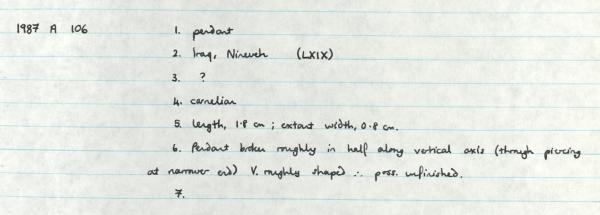 1987 A 106 1. pendant
2. Iraq, Nineveh (LXIX)
3. ?
4. carnelian
5. length, 1.8 cm ; extant width, 0.8 cm.
6. Pendant broken roughly in half along vertical axis (through piercing
at narrower end) V. roughly shaped ∴ poss. unfinished.
7.